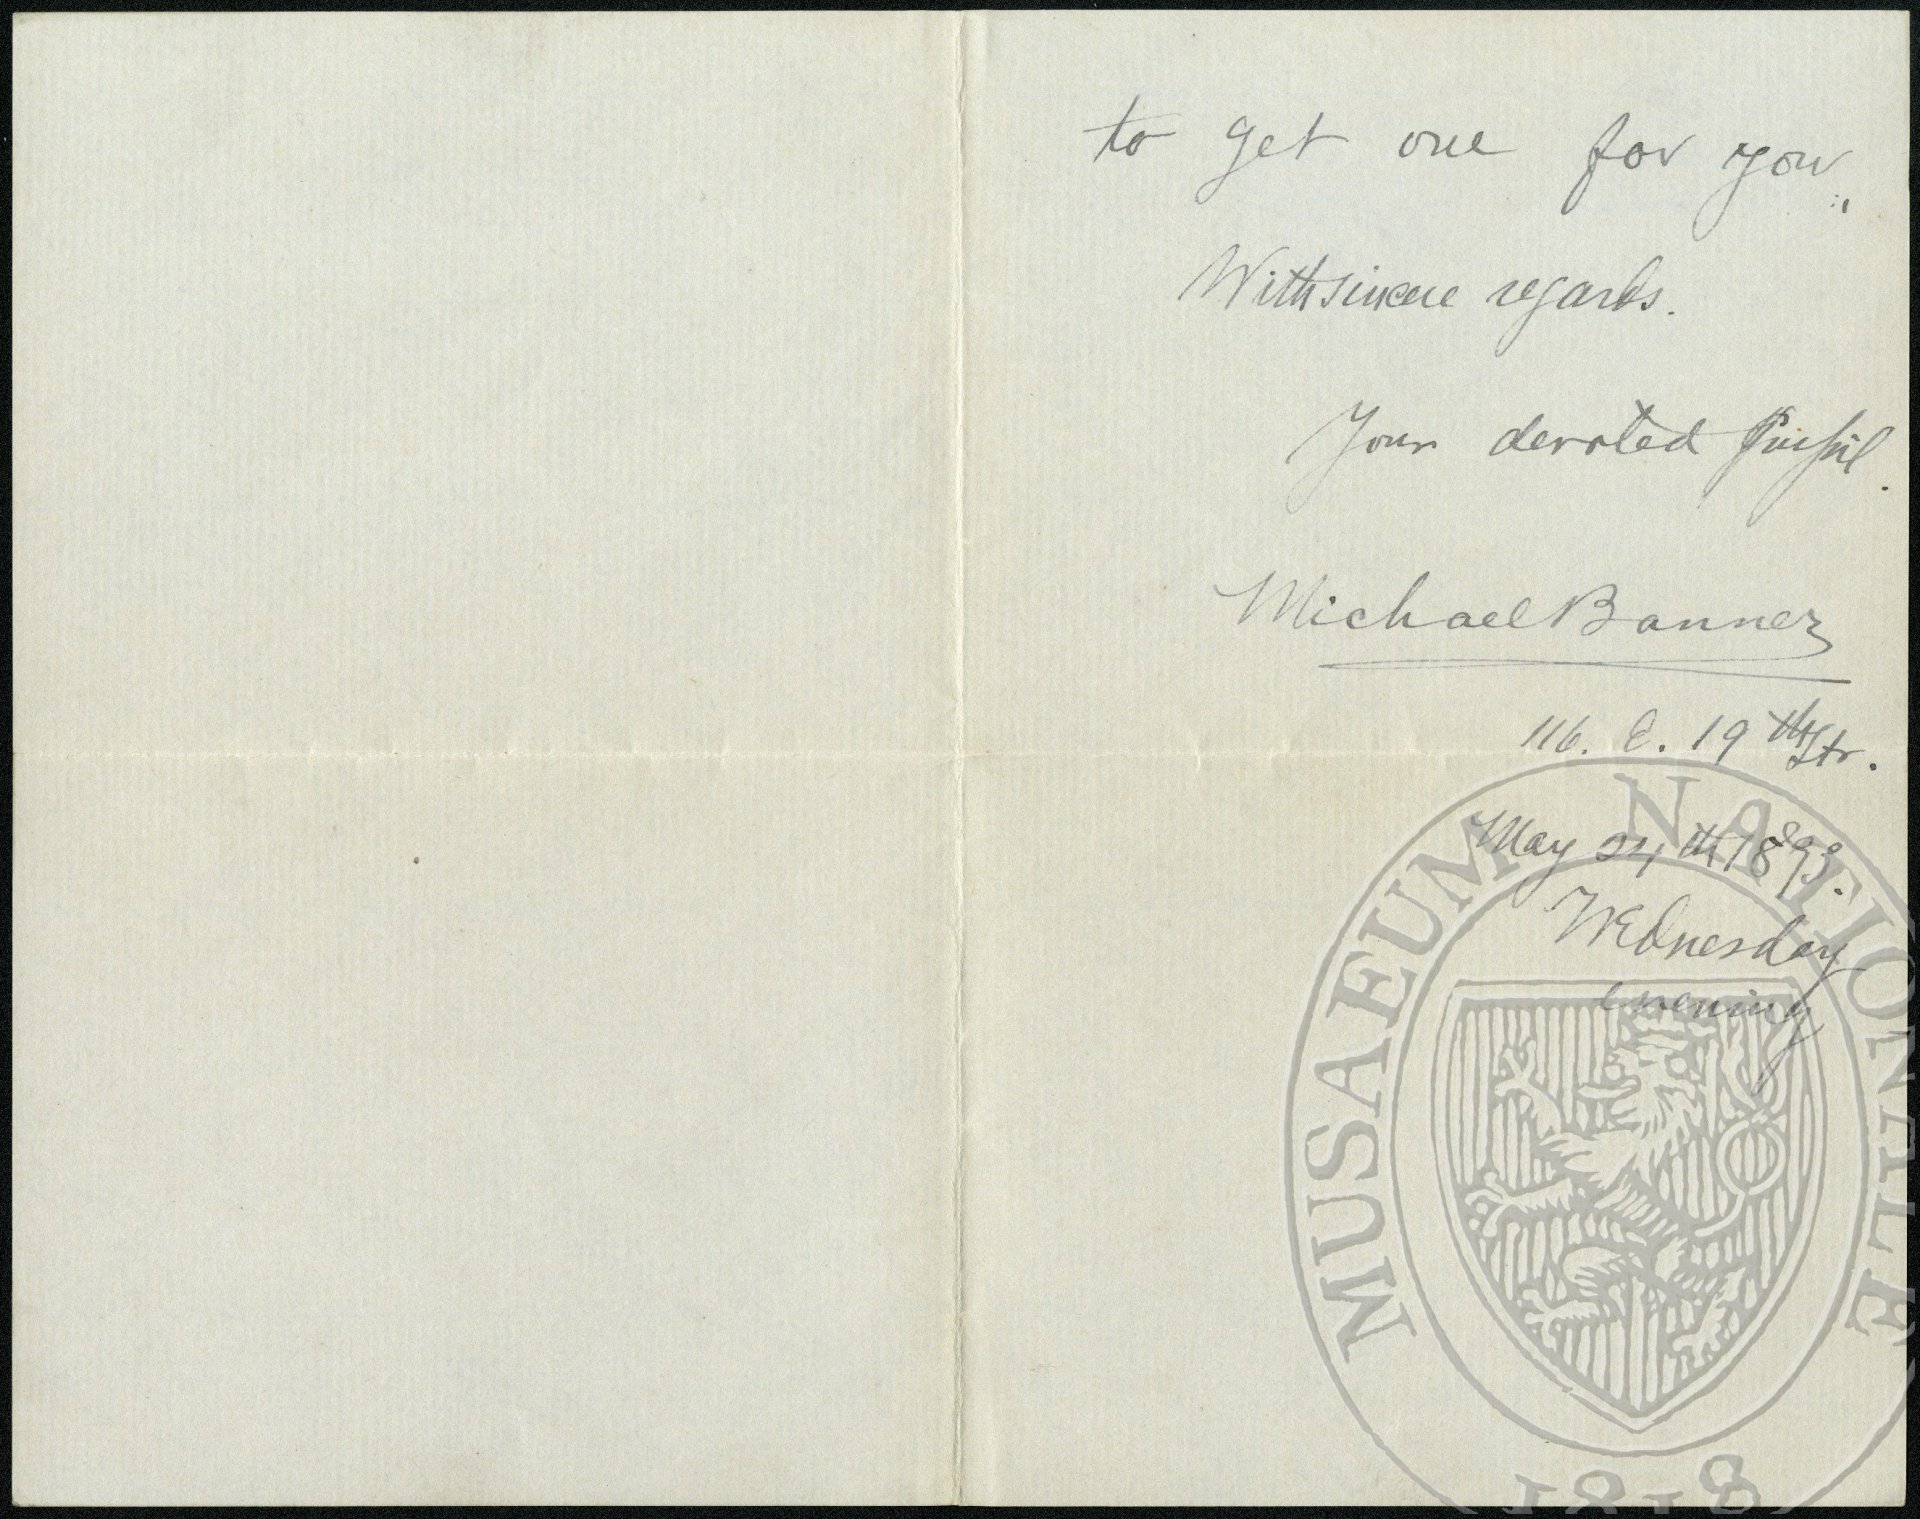 to get one for you.
With sincere regards.
Your devoted Pupil.
Michael Banner
116. E. 19th Str.
May 24th 1893.
Wednesday
evening
MUSAEUM NATIONALE
1818